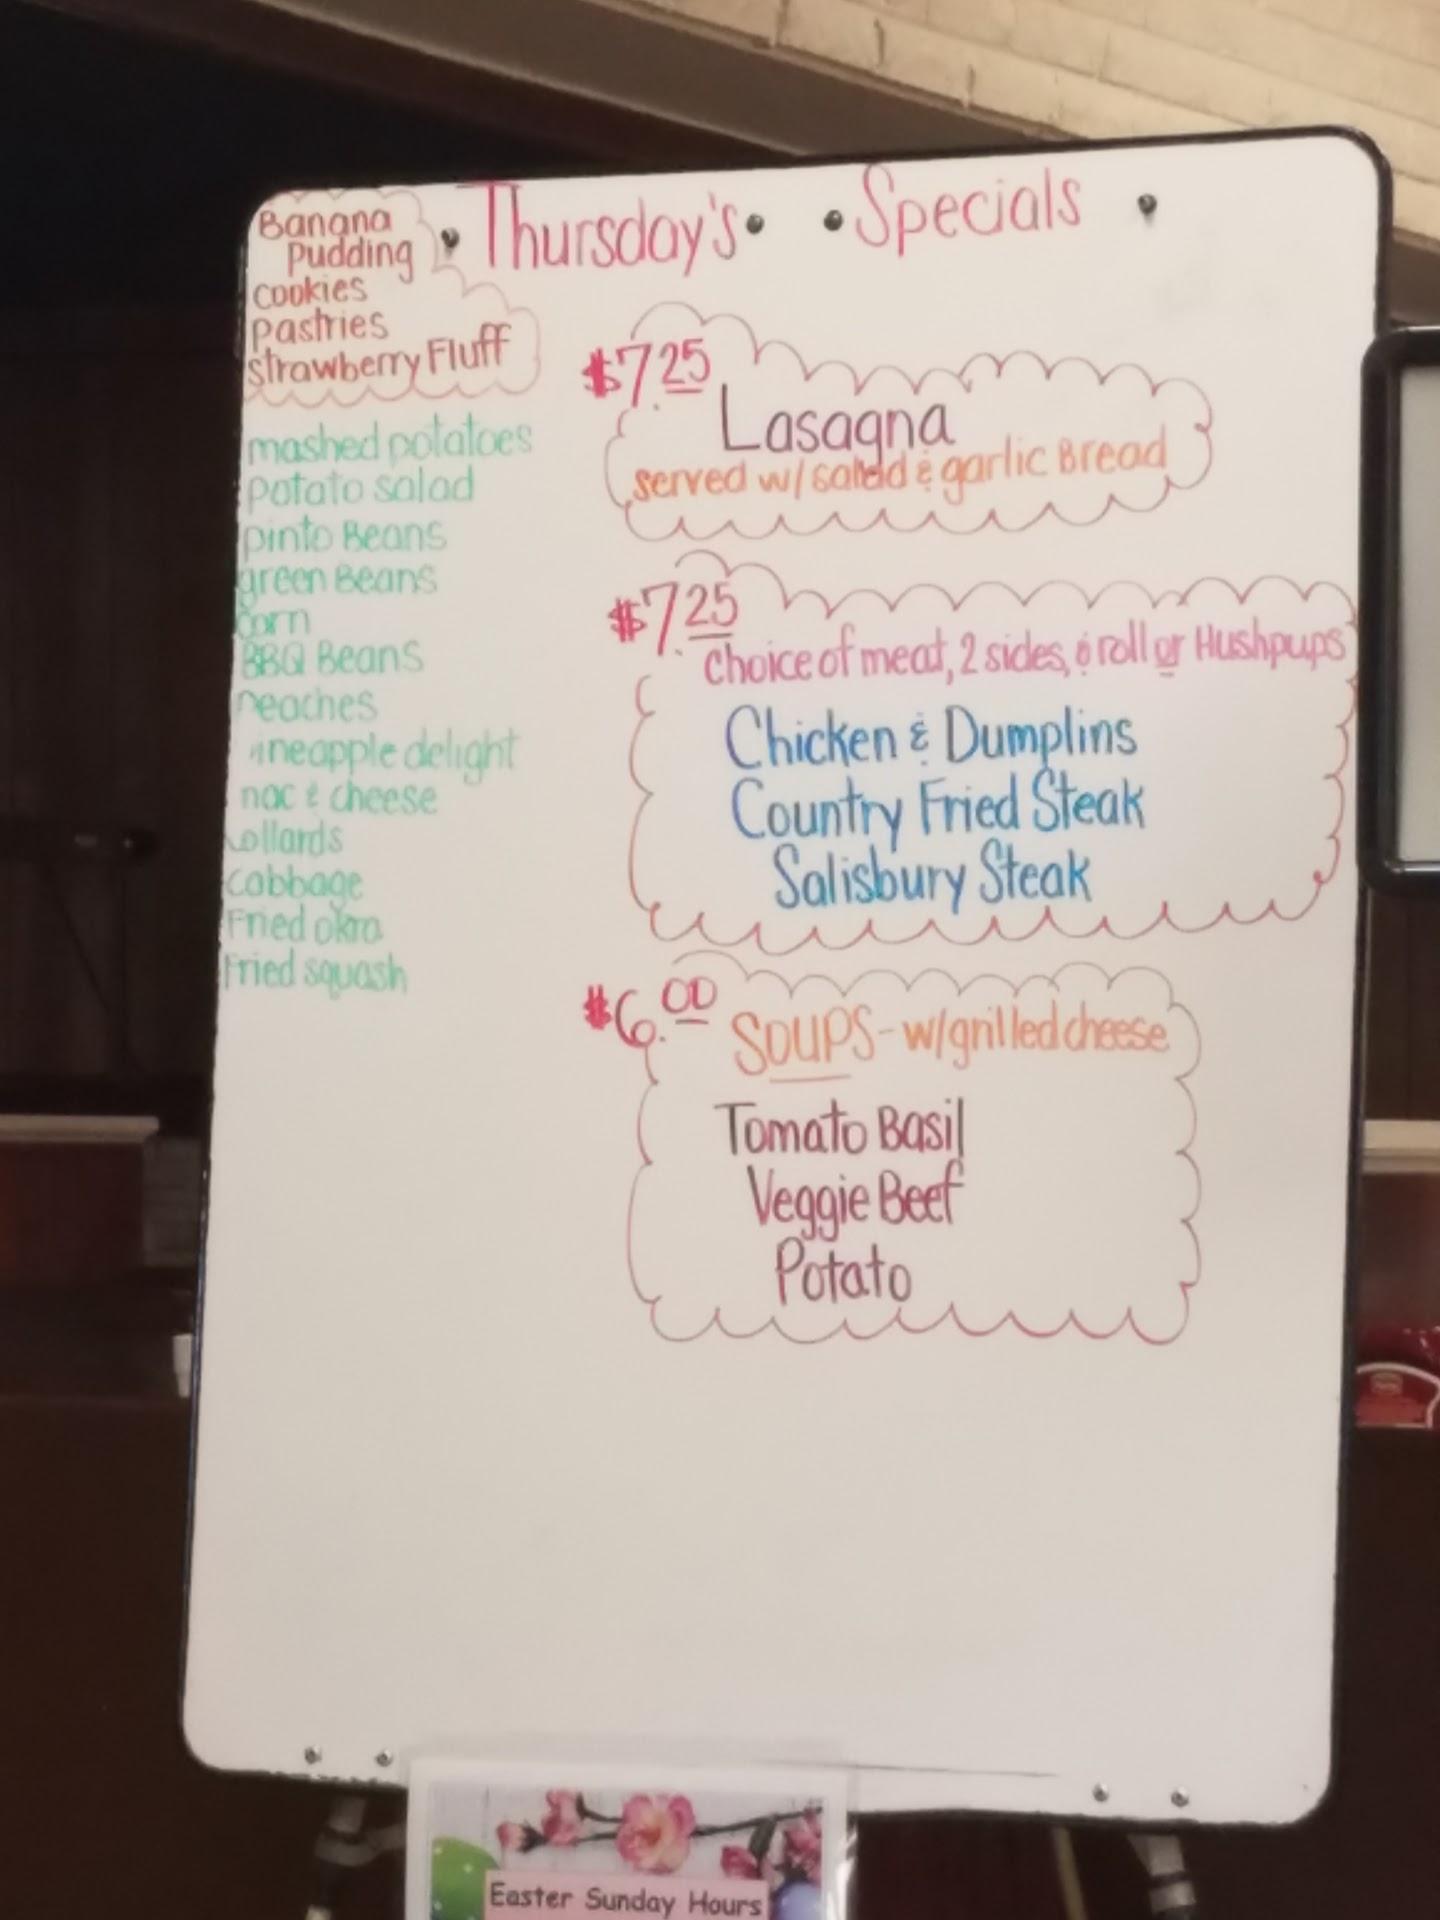 Thursday's Specials
Banana
Pudding
cookies
pastries
strawberry Fluff
mashed potatoes
potato salad
pinto Beans
green Beans
corn
BBQ Beans
peaches
ineapple delight
mac & cheese
ollards
cabbage
Fried okra
Fried squash
$7.25
Lasagna
served w/ salad & garlic Bread
$7.25
choice of meat, 2 sides, & roll or Hushpups
Chicken & Dumplins
Country Fried Steak
Salisbury Steak
$6.00
SOUPS - w/grilled cheese
Tomato Basil
Veggie Beef
Potato
Easter Sunday Hours